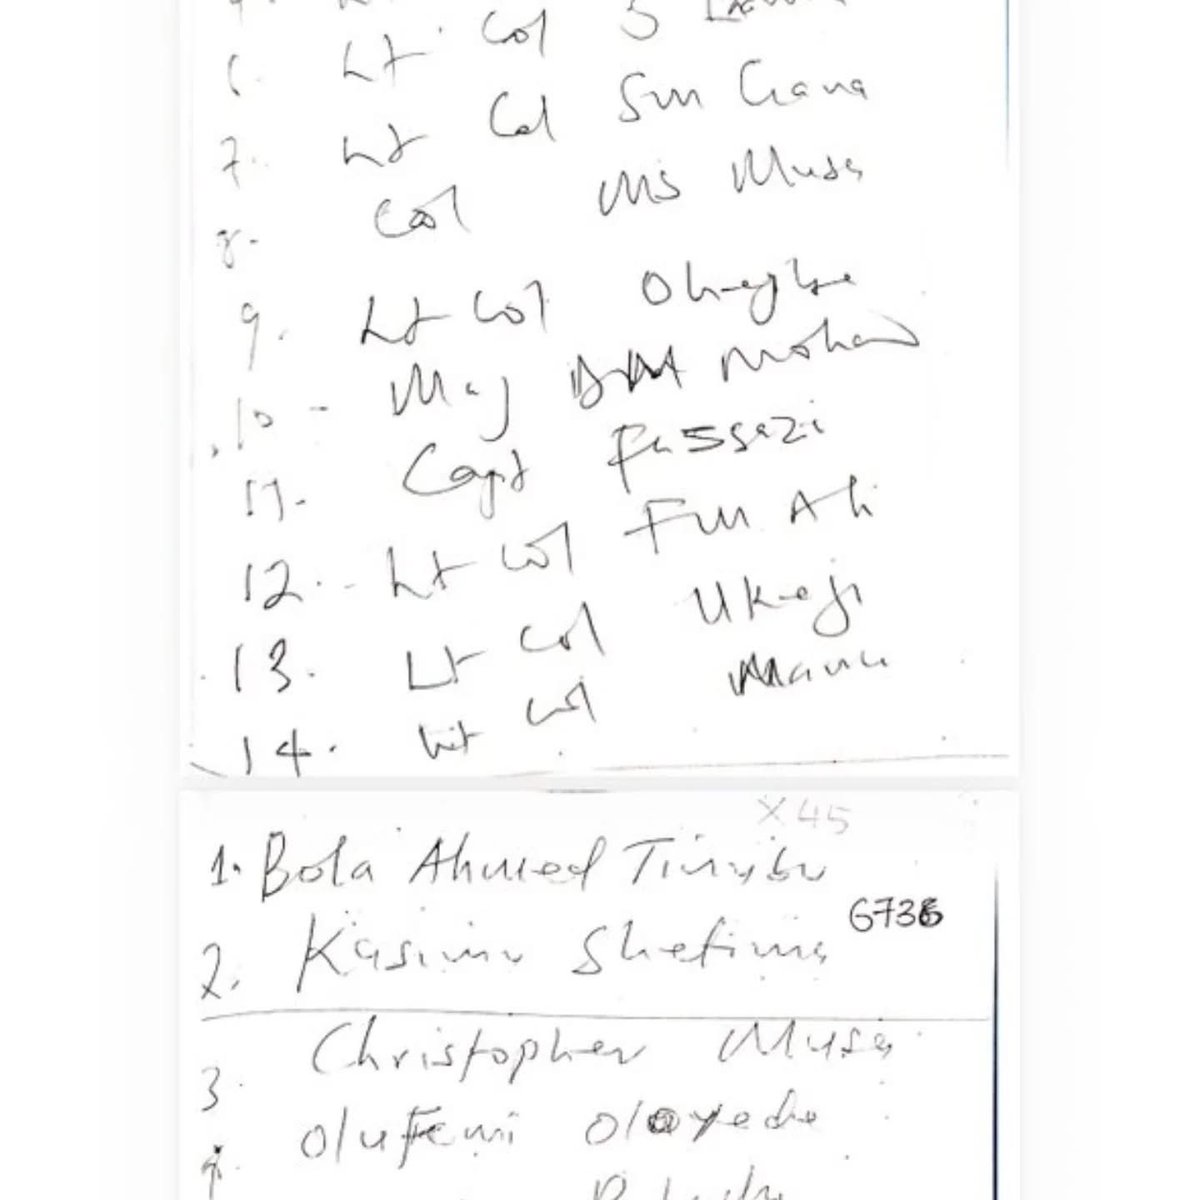 6. Lt Col S
7. Lt Col Sm Gana
8. Col Ms Musa
9. Lt Col Ohegbe
10 - Maj Mohad
11. Capt Fassazi
12. - Lt Col Fm Ali
13. Lt Col Ukeji
14. Lt Col Manu
X45
1. Bola Ahmed Tinubu
6736
2. Kasimu Shetima
3. Christopher Musa
4. Olufemi Oloyede